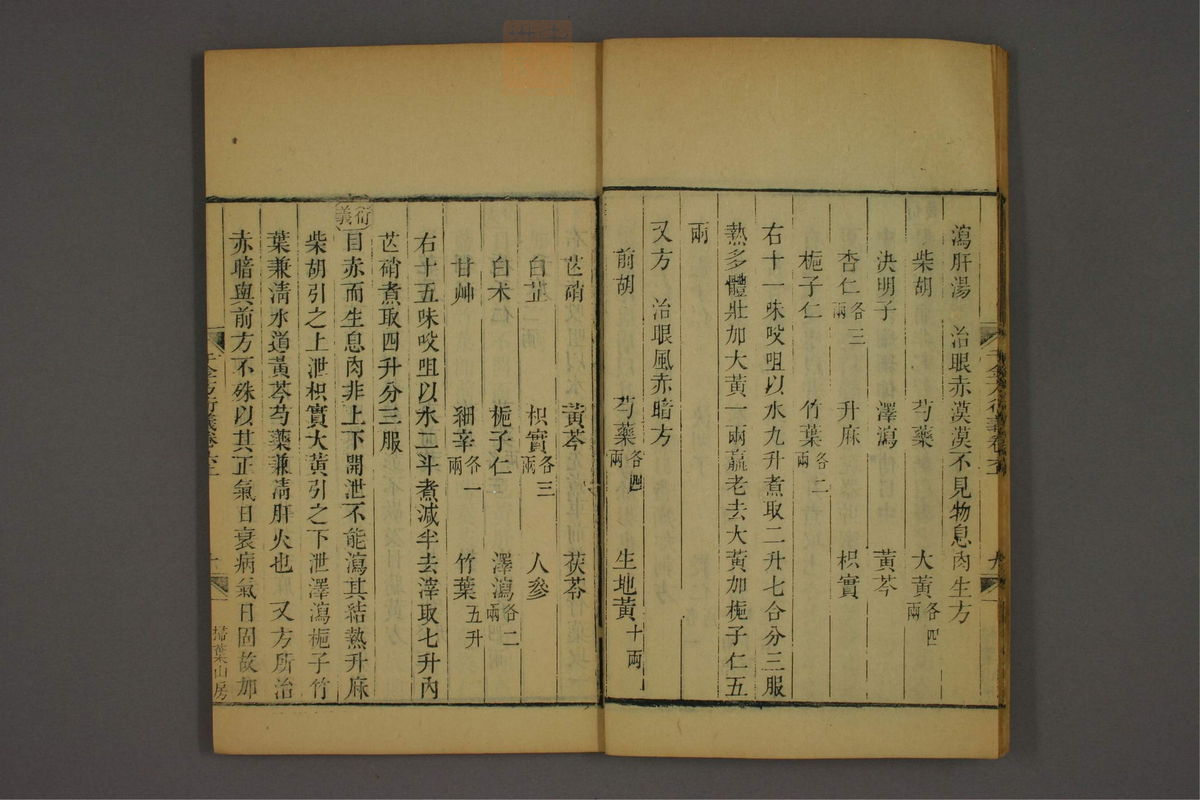 瀉肝湯　治眼赤漠漠不見物息肉生方
柴胡　芍藥　大黃各四兩
決明子　澤瀉　黃芩
杏仁各三兩　升麻　枳實
梔子仁　竹葉各二兩
右十一味㕮咀以水九升煮取二升七合分三服
熱多體壯加大黃一兩羸老去大黃加梔子仁五
兩
又方　治眼風赤暗方
前胡　芍藥各四兩　生地黃十兩
芒硝　黃芩　茯苓
白芷　枳實各三兩　人參
白朮　梔子仁　澤瀉各二兩
甘艸　細辛各一兩　竹葉五升
右十五味㕮咀以水二斗煮減半去滓取七升內
芒硝煮取四升分三服
衍義
目赤而生息肉非上下開泄不能瀉其結熱升麻
柴胡引之上泄枳實大黃引之下泄澤瀉梔子竹
葉兼淸水道黃芩芍藥兼淸肝火也　又方所治
赤暗與前方不殊以其正氣日衰病氣日固故加
千金方衍義卷六上
掃葉山房